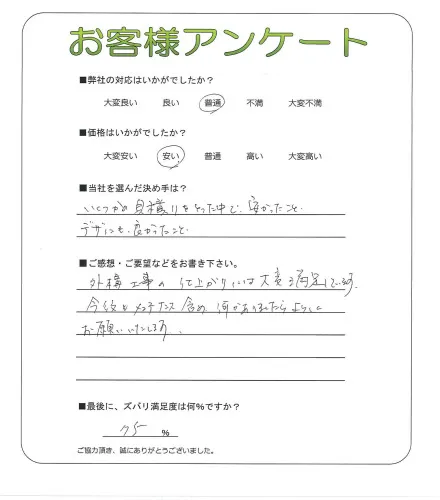 お客様アンケート
■弊社の対応はいかがでしたか?
大変良い 良い 普通 不満 大変不満
■価格はいかがでしたか?
大変安い 安い 普通 高い 大変高い
■当社を選んだ決め手は?
いくつかの見積りをとった中で、安かったこと
デザインも良かったこと
■ご感想・ご要望などをお書き下さい。
外構工事の仕上がりには大変満足しています。
今後もメンテナンス含め、何かありましたらよろしく
お願いいたします。
■最後に、ズバリ満足度は何%ですか?
75 %
ご協力頂き、誠にありがとうございました。